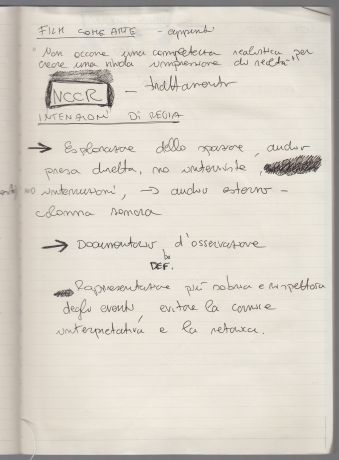 FILM COME ARTE - appunti
"Non occorre una completezza realistica per
creare una nitida impressione di realtà"
NCCR - trattamento
INTENZIONI DI REGIA
→ Esplorazione dello spazio, audio
presa diretta, no interviste,
no interruzioni, → audio esterno -
colonna sonora
→ Documentario d'osservazione
DEF.
Rappresentazione più sobria e rispettosa
degli eventi, evitare la cornice
interpretativa e la retorica.